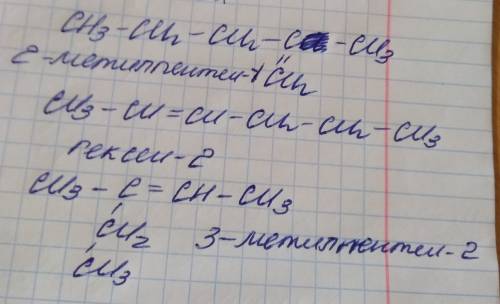 CH3-CH2-CH2-C-CH3
2-метилпентен-1 CH2
CH3-CH=CH-CH2-CH2-CH3
гексен-2
CH3-C=CH-CH3
CH2 3-метилпентен-2
CH3